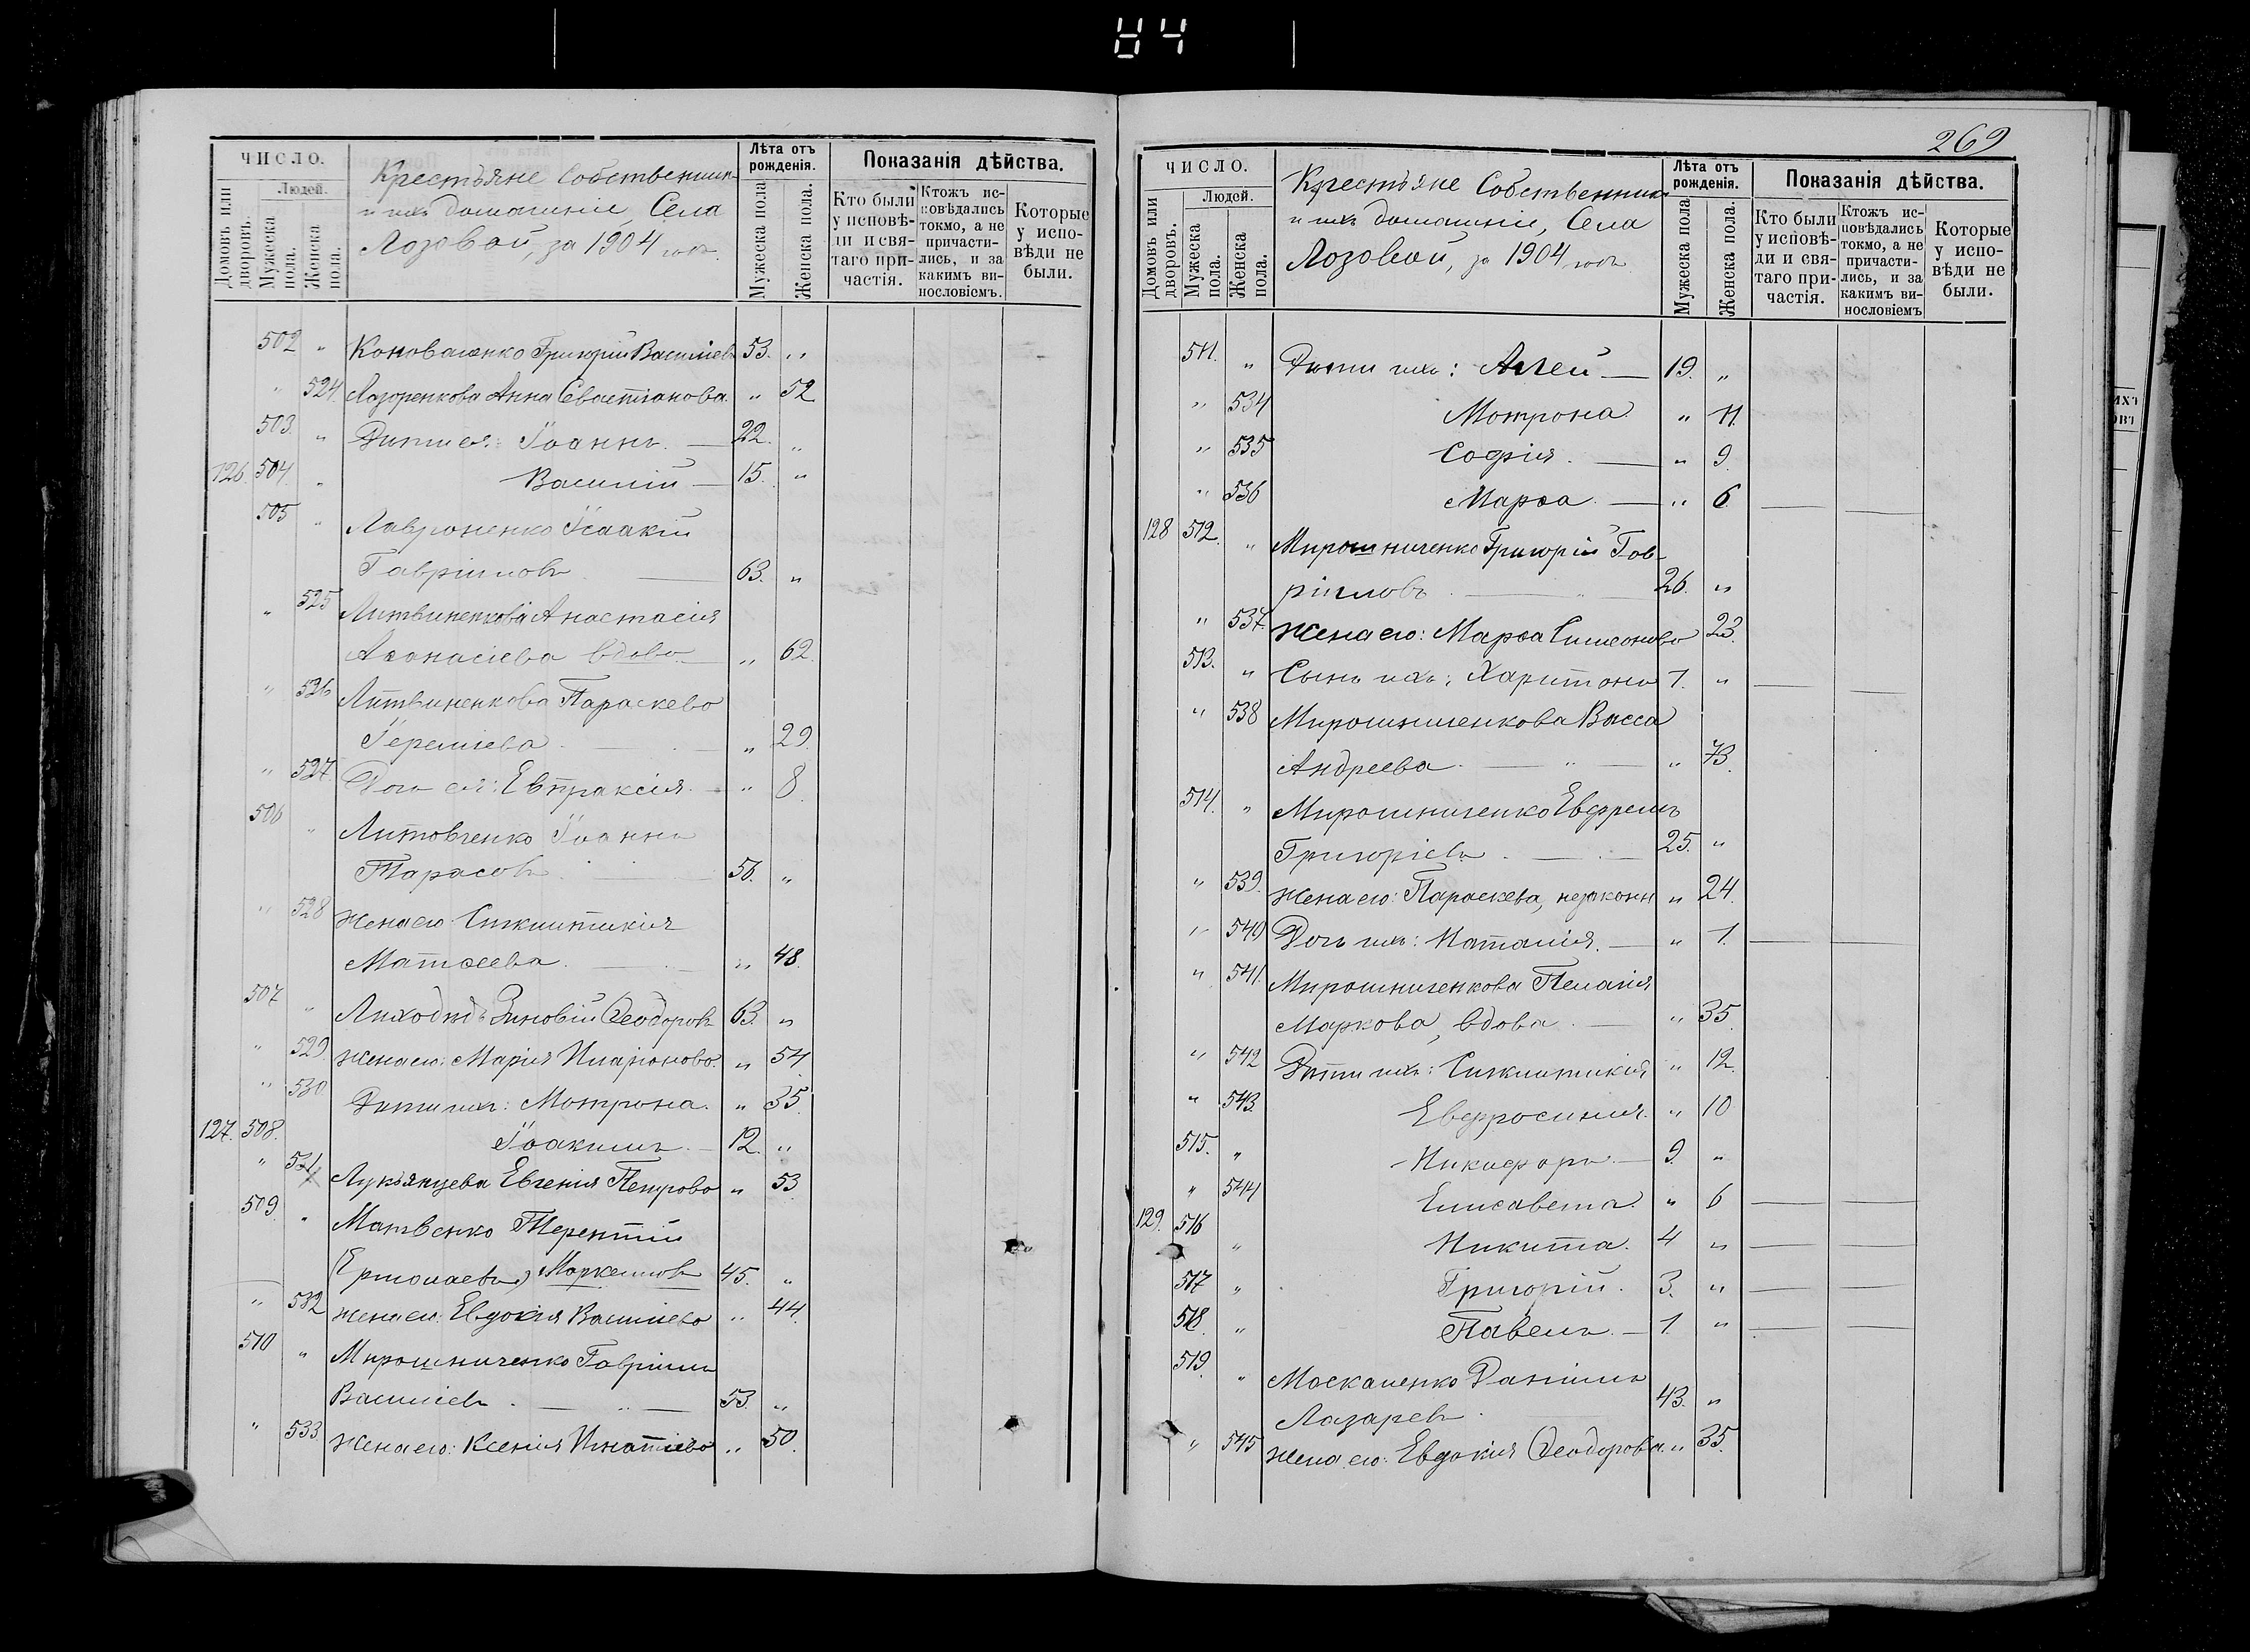 84
ЧИСЛО.
Домовъ или дворовъ.
Людей.
Мужеска пола.
Женска пола.
Крестьяне Собственник
и ихъ домашніе, Села
Лозовой, за 1904 годъ.
Лѣта отъ рожденія.
Мужеска пола
Женска пола.
Показанія дѣйства.
Кто были у исповѣди и святаго причастія.
Ктожъ исповѣдались токмо, а не причастились, и за какимъ винословіемъ.
Которые у исповѣди не были.
502 " Коноваленко Григорій Васильевъ 53. "
" 524. Лазоренкова Анна Севастіанова " 52
503. " Дѣти ея: Іоаннъ. — 22. "
126. 504. " Василій — 15. "
505 " Лавроненко Исаакій
Гавріиловъ — 63. "
" 525 Литвиненкова Анастасія
Аѳанасіева вдова " 62.
" 526 Литвиненкова Параскева
Іереміева " 29.
" 527 Дочь ея: Евпраксія. " 8.
506 " Литовченко Іоаннъ
Тарасовъ 56. "
" 528 Жена его Синклитикія
Матѳеева. " 48.
507 " Лиходѣдъ Зиновій Ѳеодоровъ 63. "
" 529. Жена его: Марія Иларіонова. " 54.
" 530. Дѣти ихъ: Мотрона. " 35.
127. 508. Іоакимъ. — 12. "
" 531 Лукьянцева Евгенія Петрова " 53.
509. " Матвенко Терентій
(Ермолаевъ) Маркелловъ 45. "
" 532 Жена его: Евдокія Васильева " 44.
510 " Мирошниченко Гавріилъ
Васильевъ 53. "
" 533. Жена его: Ксенія Игнатіева " 50.
269
ЧИСЛО.
Домовъ или дворовъ.
Людей.
Мужеска пола.
Женска пола.
Крестьяне Собственник
и ихъ домашніе, Села
Лозовой, за 1904 годъ
Лѣта отъ рожденія.
Мужеска пола
Женска пола.
Показанія дѣйства.
Кто были у исповѣди и святаго причастія.
Ктожъ исповѣдались токмо, а не причастились, и за какимъ винословіемъ
Которые у исповѣди не были.
511. " Дѣти ихъ: — 19. "
" 534 Мотрона " 11.
" 535 Софія. — " 9.
" 536 Марѳа. — " 6.
128 512. " Мирошниченко Григорій Гав-
ріиловъ 26. "
" 537. Жена его: Марѳа Симеонова 23.
513. " Сынъ ихъ: Харитонъ 1. "
" 538 Мирошниченкова Васса
Андреева. " 73.
514. " Мирошниченко Евфремъ
Григоріевъ 25. "
" 539. Жена его: Параскева, незаконн " 24.
" 540 Дочь ихъ: Наталія. — " 1.
" 541. Мирошниченкова Пелагія
Маркова, вдова. " 35.
" 542 Дѣти ихъ: Синклитикія " 12.
" 543. Евфросинія. " 10
515. " Никифоръ. — 9. "
" 544 Елисавета. " 6
129. 516 " Никита. 4 "
517 " Григорій. 3. "
518. " Павелъ. — 1. "
519. " Москаленко Даніилъ
Лазаревъ. 43. "
" 545 Жена его: Евдокія Ѳеодорова. " 35.